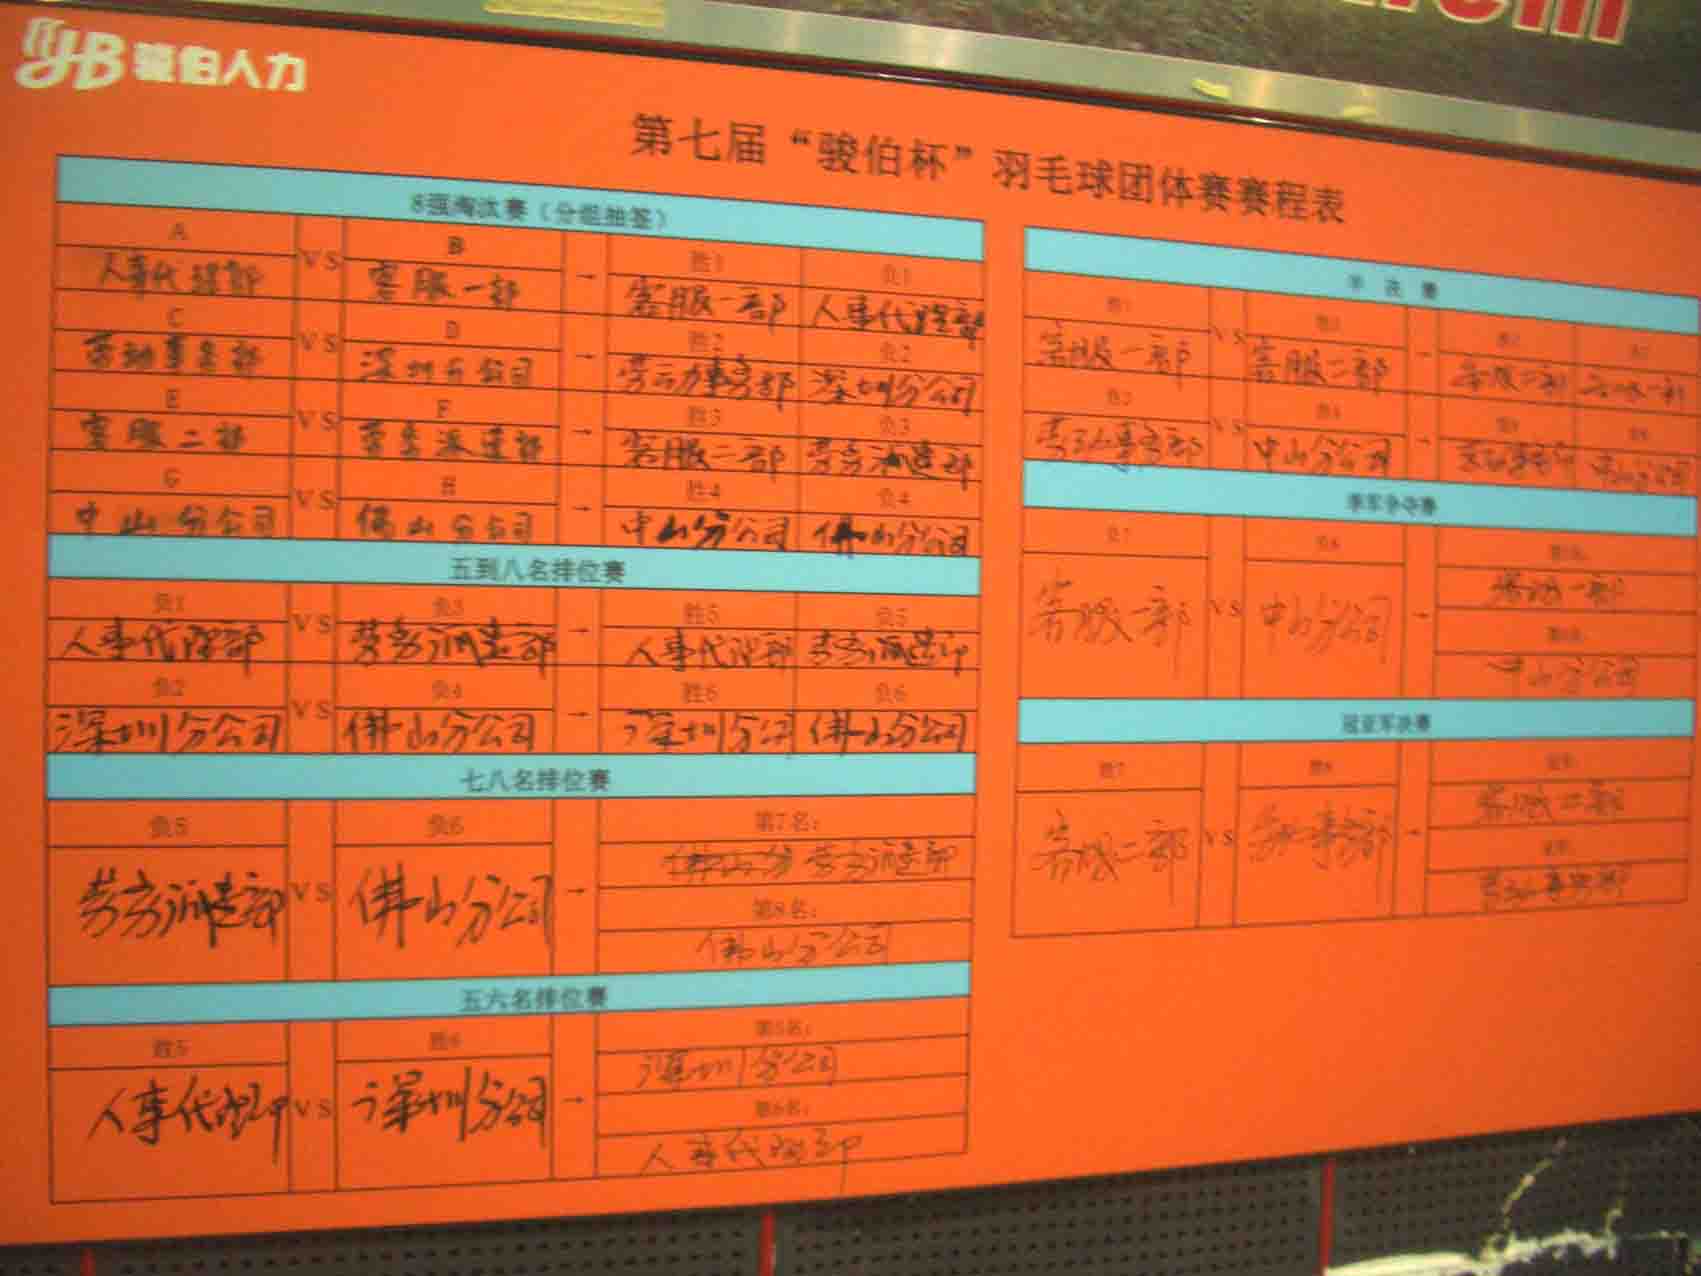 骏伯人力
第七届“骏伯杯”羽毛球团体赛赛程表
8强淘汰赛（分组抽签）
A VS B → 胜1 负1
人事代理部 客服一部 客服一部 人事代理部
C VS D → 胜2 负2
劳动事务部 深圳分公司 劳动事务部 深圳分公司
E VS F → 胜3 负3
客服二部 劳务派遣部 客服二部 劳务派遣部
G VS H → 胜4 负4
中山分公司 佛山分公司 中山分公司 佛山分公司
五到八名排位赛
负1 VS 负3 → 胜5 负5
人事代理部 劳务派遣部 人事代理部 劳务派遣部
负2 VS 负4 → 胜6 负6
深圳分公司 佛山分公司 深圳分公司 佛山分公司
七八名排位赛
负5 VS 负6 → 第7名：
劳务派遣部 佛山分公司 劳务派遣部
第8名：
佛山分公司
五六名排位赛
胜5 VS 胜6 → 第5名：
人事代理部 深圳分公司 深圳分公司
第6名：
人事代理部
半决赛
胜1 VS 胜3 →
客服一部 客服二部 客服二部 客服一部
胜2 VS 胜4 →
劳动事务部 中山分公司 劳动事务部 中山分公司
季军争夺赛
负7 VS 负8 →
客服一部 中山分公司 客服一部
中山分公司
冠亚军决赛
胜7 VS 胜8 →
客服二部 劳动事务部 客服二部
劳动事务部